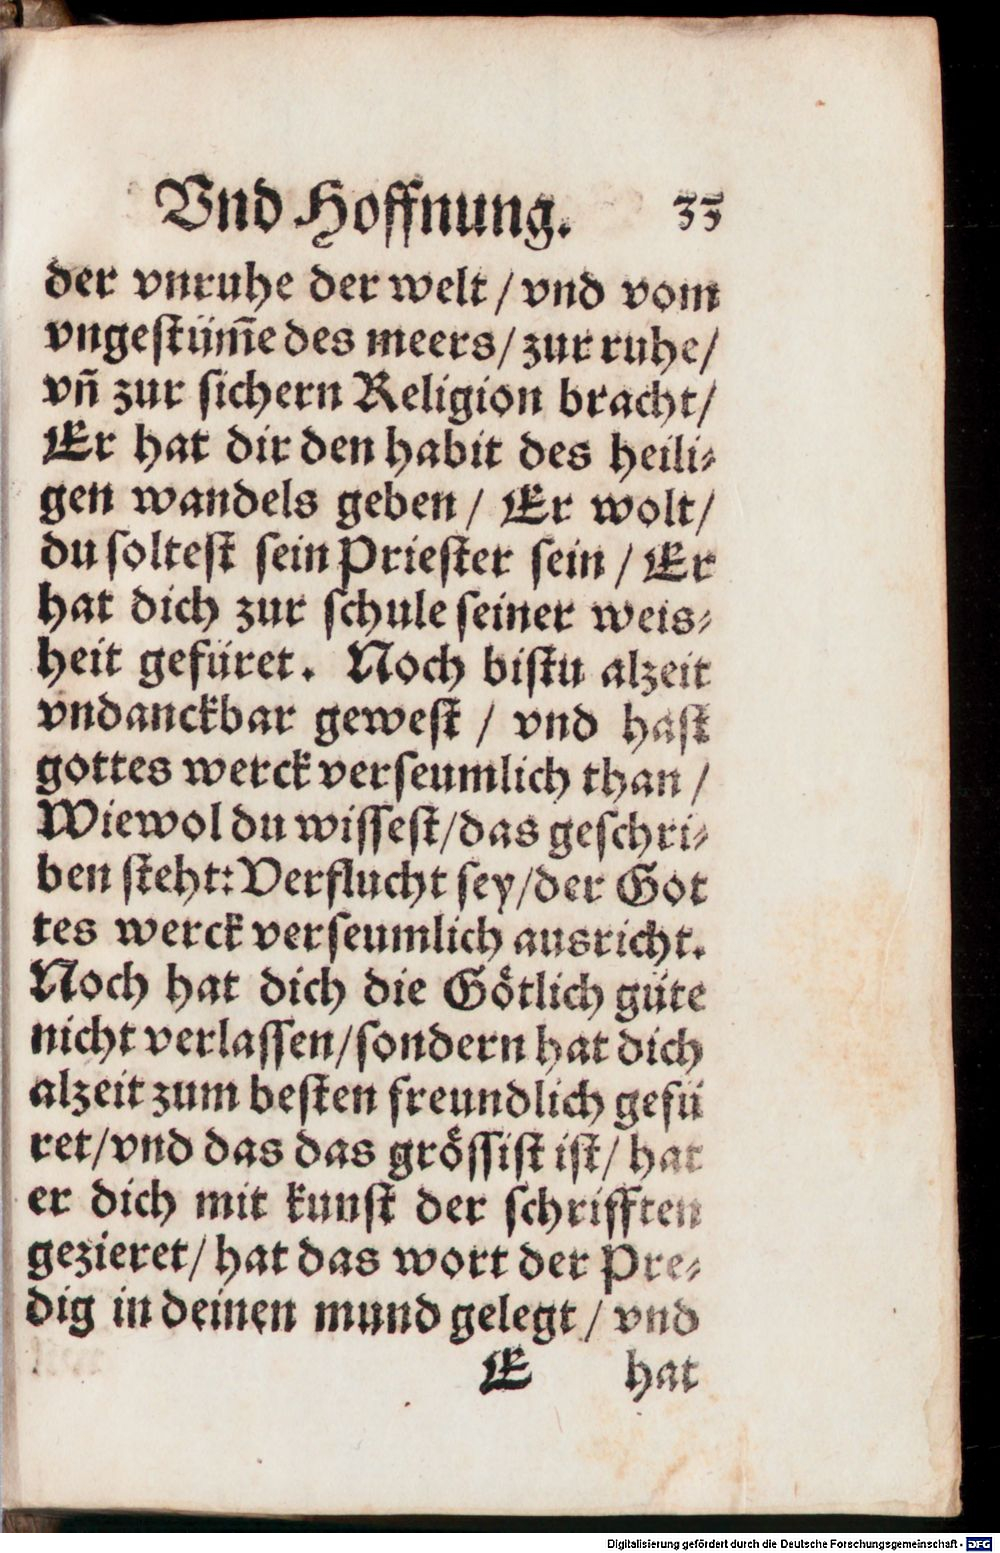 Vnd Hoffnung. 33
der vnruhe der welt / vnd vom
vngestüm̃e des meers / zur ruhe /
vñ zur sichern Religion bracht /
Er hat dir den habit des heili⸗
gen wandels geben / Er wolt /
du soltest sein Priester sein / Er
hat dich zur schule seiner weis⸗
heit gefüret. Noch bistu alzeit
vndanckbar gewest / vnd hast
gottes werck verseumlich than /
Wiewol du wissest / das geschri⸗
ben steht: Verflucht sey / der Got
tes werck verseumlich ausricht.
Noch hat dich die Götlich güte
nicht verlassen / sondern hat dich
alzeit zum besten freundlich gefü
ret / vnd das das grössist ist / hat
er dich mit kunst der schrifften
gezieret / hat das wort der Pre⸗
dig in deinen mund gelegt / vnd
E hat
Digitalisierung gefördert durch die Deutsche Forschungsgemeinschaft - DFG